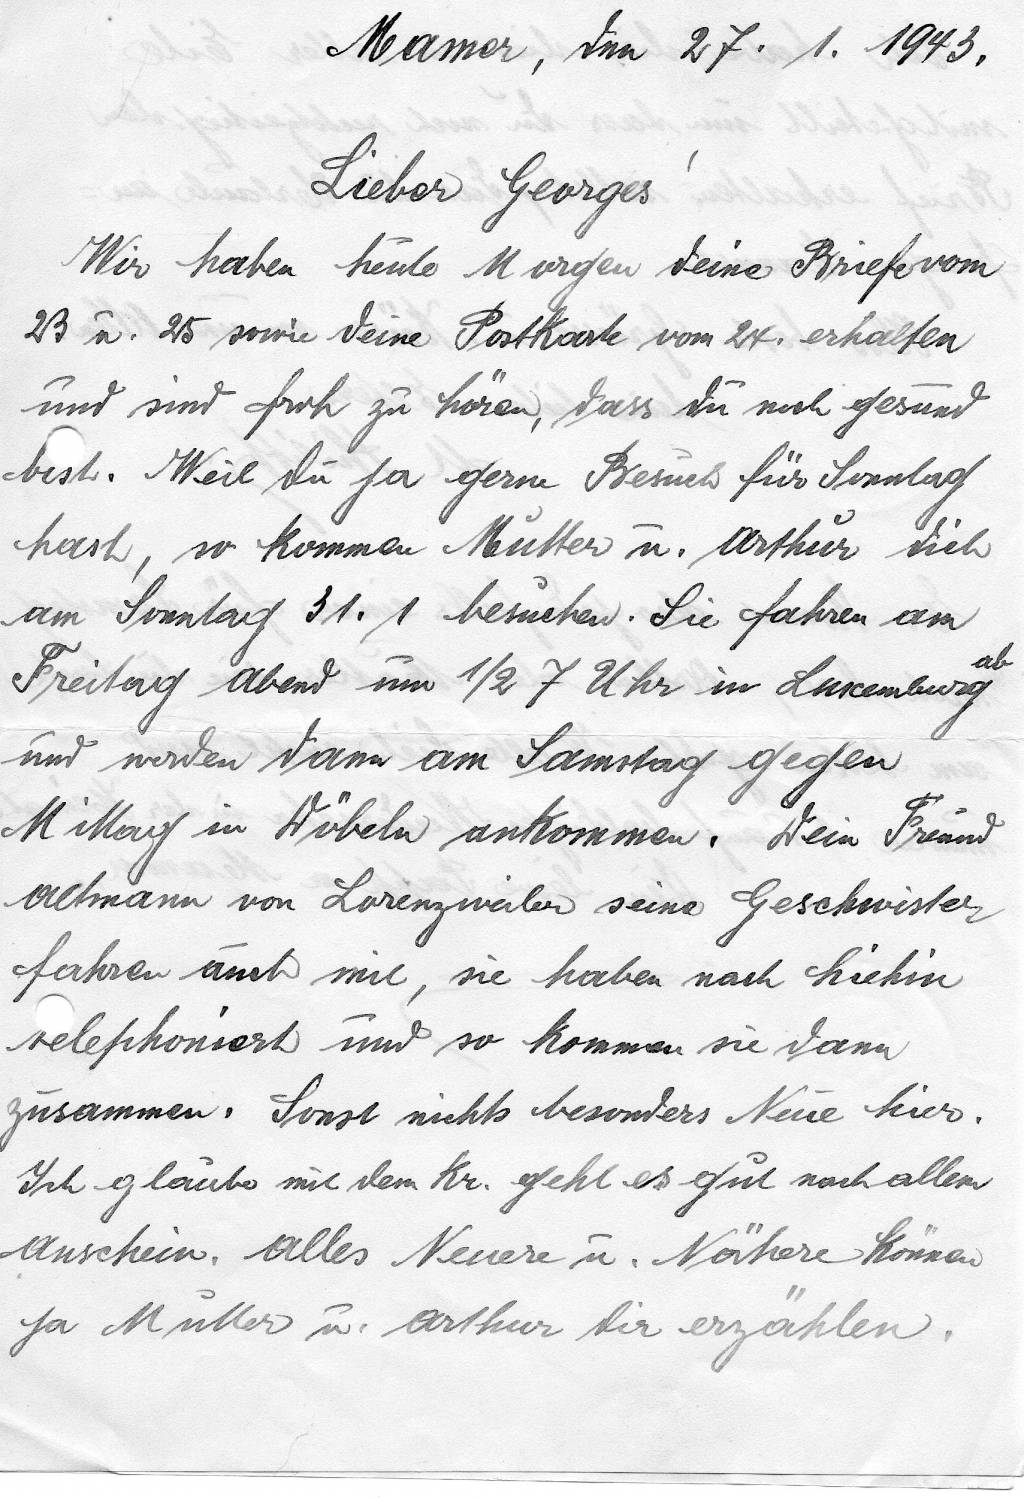 Mamer, den 27. 1. 1943.
Lieber Georges!
Wir haben heute Morgen deine Briefe vom
23 u. 25 sowie deine Postkarte vom 24. erhalten
und sind froh zu hören, dass du noch gesund
bist. Weil du ja gerne Besuch für Sonntag
hast, so kommen Mutter u. Arthur dich
am Sonntag 31. 1 besuchen. Sie fahren am
Freitag abend um 1/2 7 Uhr in Luxemburg ab
und werden dann am Samstag gegen
Mittag in Döbeln ankommen. Dein Freund
Altmann von Lorenzweiler seine Geschwister
fahren auch mit, sie haben nach hiehin
telephoniert und so kommen sie dann
zusammen. Sonst nichts besonders Neue hier.
Ich glaube mit dem Kr. geht es gut nach allem
Anschein. Alles Neuere u. Nähere können
ja Mutter u. Arthur dir erzählen.